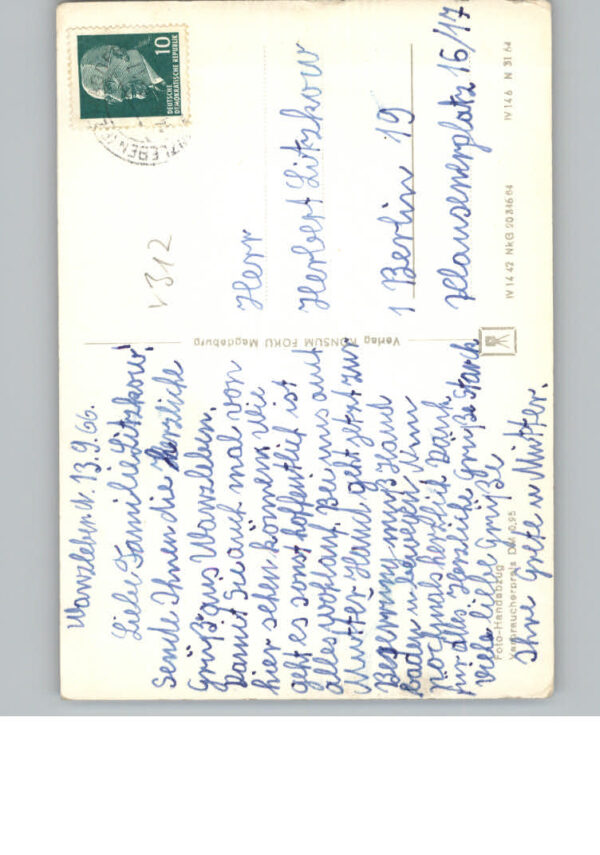 Wanzleben d. 13.9.66.
Liebe Familie Litzkow!
Sende Ihnen die herzliche
Grüße aus Wanzleben.
Damit Sie auch mal von
hier sehn können. Wie
geht es sonst hoffentlich ist
alles wohlauf. Bei uns auch
Mutter Hand geht jetzt zur
muß Hand
baden u. bewegen. Nun
nochmals herzlich Dank
für alles. Herzliche Grüße
viele liebe Grüße
Ihre Grete u. Mutter.
Foto-Handabzug
Verbraucherpreis DM 0,95
Verlag KONSUM FOKU Magdeburg
V312
10
DEUTSCHE
DEMOKRATISCHE REPUBLIK
Herr
Herbert Litzkow
1 Berlin 19
Klausenerplatz 16/17
IV 14 42 NkG 20 346 64
IV 14 6 N 31 64